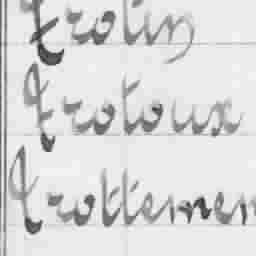 frotin
frotoux
frottemen